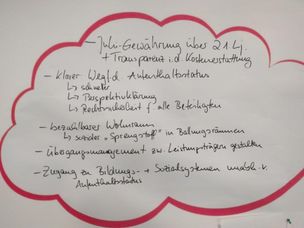 - JuHi-Gewährung über 21 Lj.
+ Transparenz i.d. Kostenerstattung
- Klarer Weg/d. Aufenthaltsstatus
↳ schneller
↳ Perspektivklärung
↳ Rechtssicherheit f. alle Beteiligten
- bezahlbarer Wohnraum
↳ sozialer "Sprengstoff" in Ballungsräumen
- Übergangsmanagement zw. Leistungsträgern gestalten
- Zugang zu Bildungs- + Sozialsystemen unabh. v.
Aufenthaltsstatus